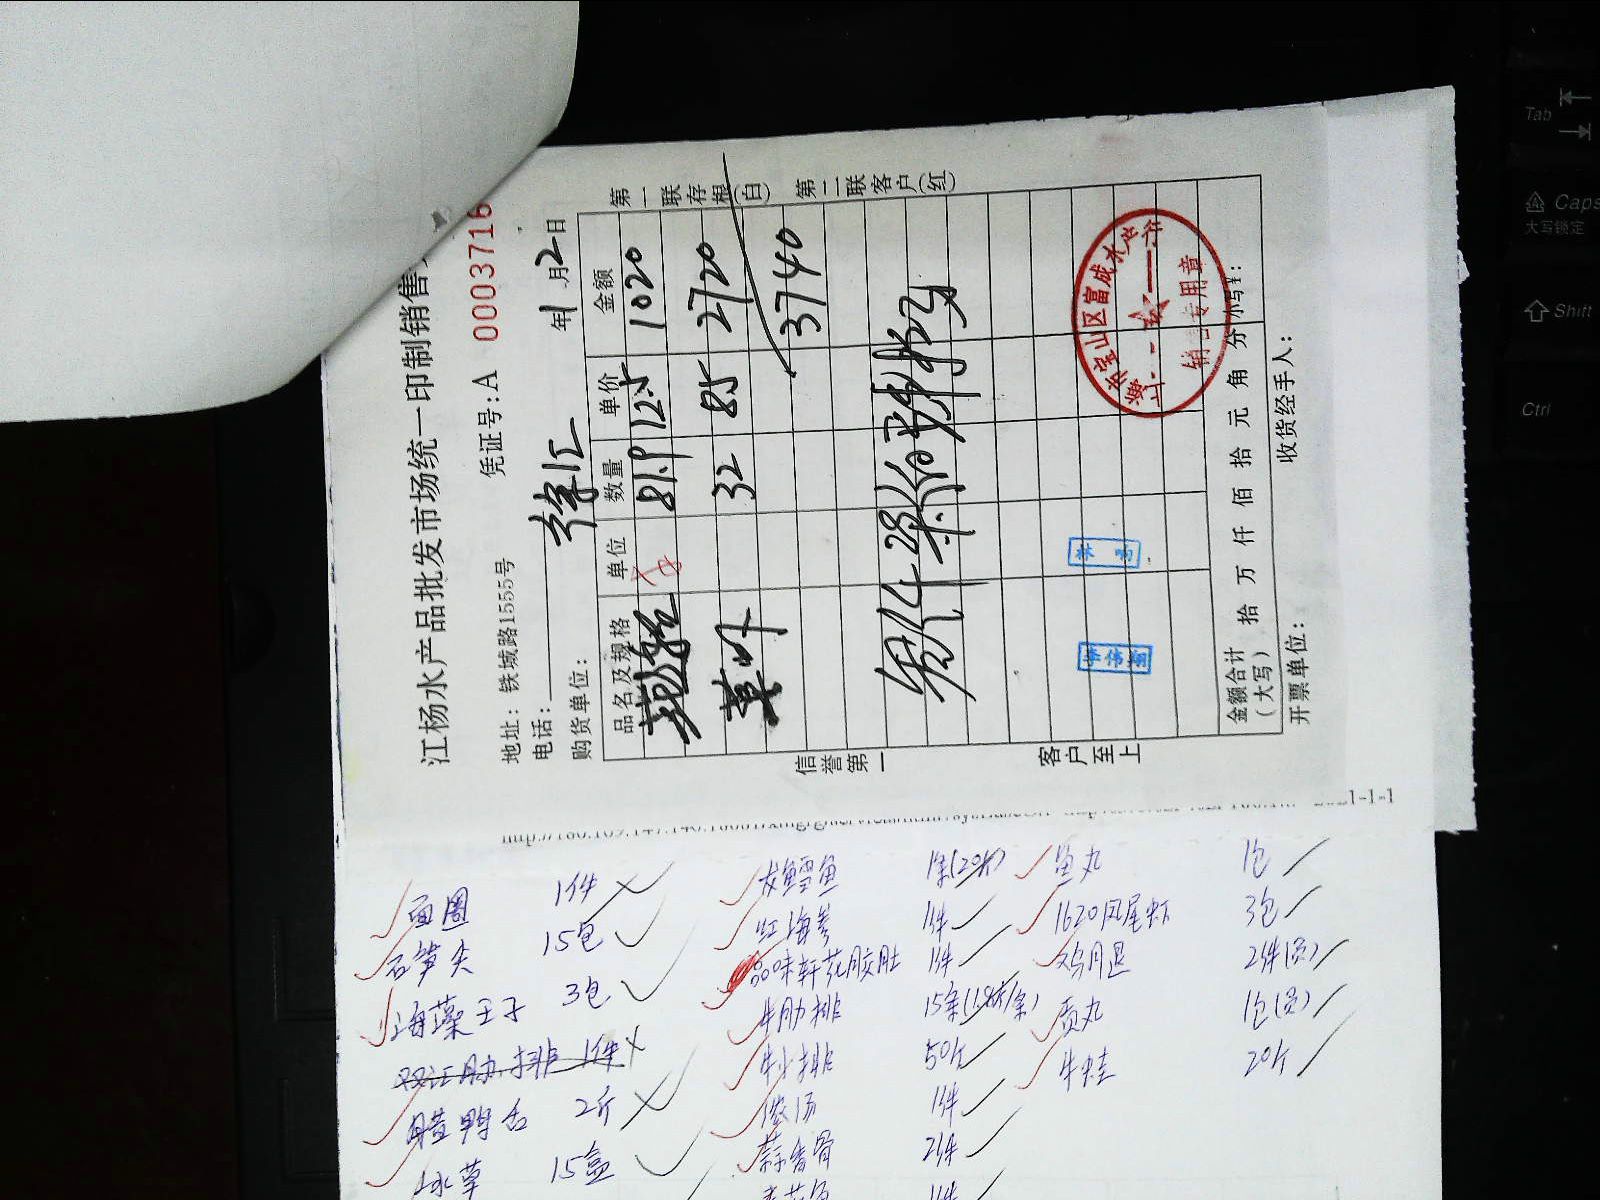 江杨水产品批发市场统一印制销售
凭证号:A 0003716
地址：铁城路1555号
电话：
购货单位： 徐汇
年1月2日
品名及规格 单位 数量 单价 金额
81.9 12.5 1020
32 85 2720
3740
第一联存根(白) 第二联客户(红)
信誉第一
客户至上
李伟翔
市宝山区富成水产
销售专用章
金额合计(大写) 拾 万 仟 佰 拾 元 角 分 小写¥:
开票单位： 收货经手人：
2021-1-1
面圈 1件
石笋尖 15包
海藻王子 3包
双汇肋排 1件
腊鸭舌 2斤
冰草 15盒
龙鳕鱼 1条(20斤)
红海参 1件
品味轩花胶肚 1件
牛肋排 15条
牛小排 50斤
浓汤 1件
蒜香骨 2件
鱼丸 1包
1620凤尾虾 3包
鸡腿 2件(员)
贡丸 1包(员)
牛蛙 20斤
Tab
Caps
大写锁定
Shift
Ctrl